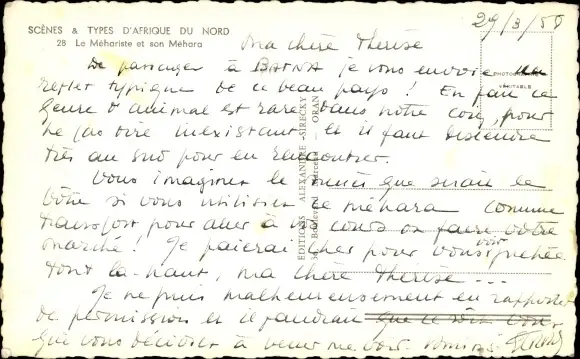 SCÈNES & TYPES D'AFRIQUE DU NORD
28 Le Méhariste et son Méhara
29/3/58
Ma chère Thérèse
De passage à BATNA je vous envoie un
PHOTOGRAPHIE VÉRITABLE
reflet typique de ce beau pays ! En fait ce
genre d'animal est rare dans notre coin, pour
ne pas dire inexistant, et il faut descendre
très au sud pour en rencontrer.
Vous imaginez le succès que serait le
vôtre si vous utilisiez ce méhara comme
transport pour aller à vos cours ou faire votre
marché ! Je paierai cher pour vous voir juchée
tout là-haut, ma chère Thérèse ...
Je ne puis malheureusement en rapporter
de permission et il faudrait que ce soit vous
que vous décidiez à venir me voir
ÉDITIONS ALEXANDRE-SIRECKY
Boulevard Marceau ORAN